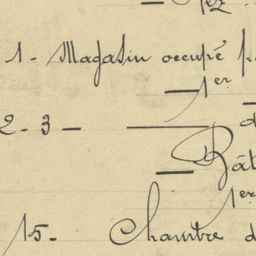 1 - Magasin occupé
— 1er
2 - 3 — —
— Bât
1er
15 - Chambre